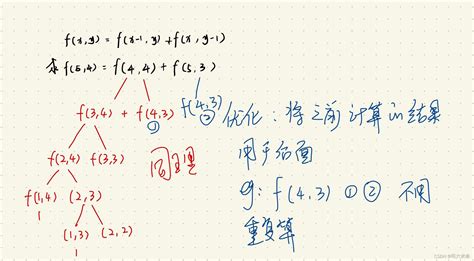 f(x,y) = f(x-1, y) + f(x, y-1)
求 f(5,4) = f(4,4) + f(5,3)
f(3,4) + f(4,3) f(4,3)
① ②
优化：将之前计算的结果
用于后面
f(2,4) f(3,3) 同理
eg: f(4,3) ①② 不用
重复算
f(1,4) (2,3)
1
(1,3) (2,2)
1